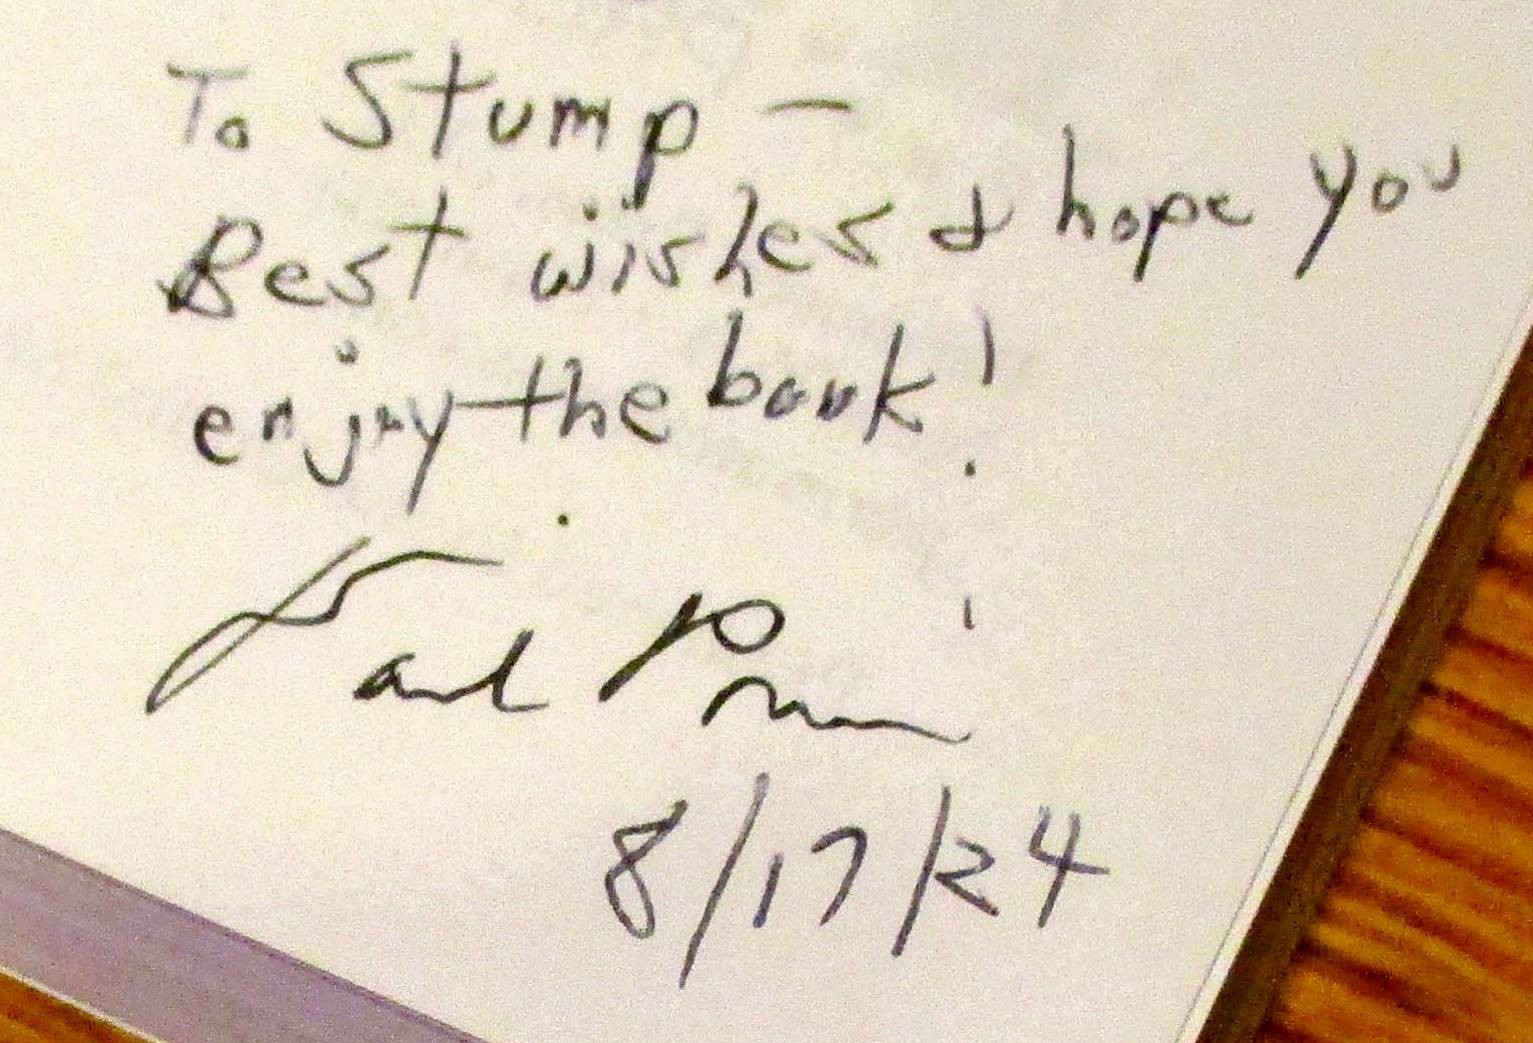 To Stump –
Best wishes & hope you
enjoy the book!
8/17/24